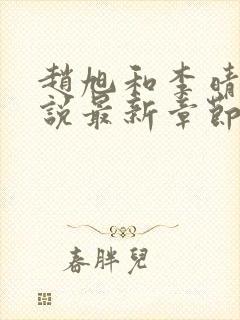 趙旭和李晴
說最新章節
春胖兒